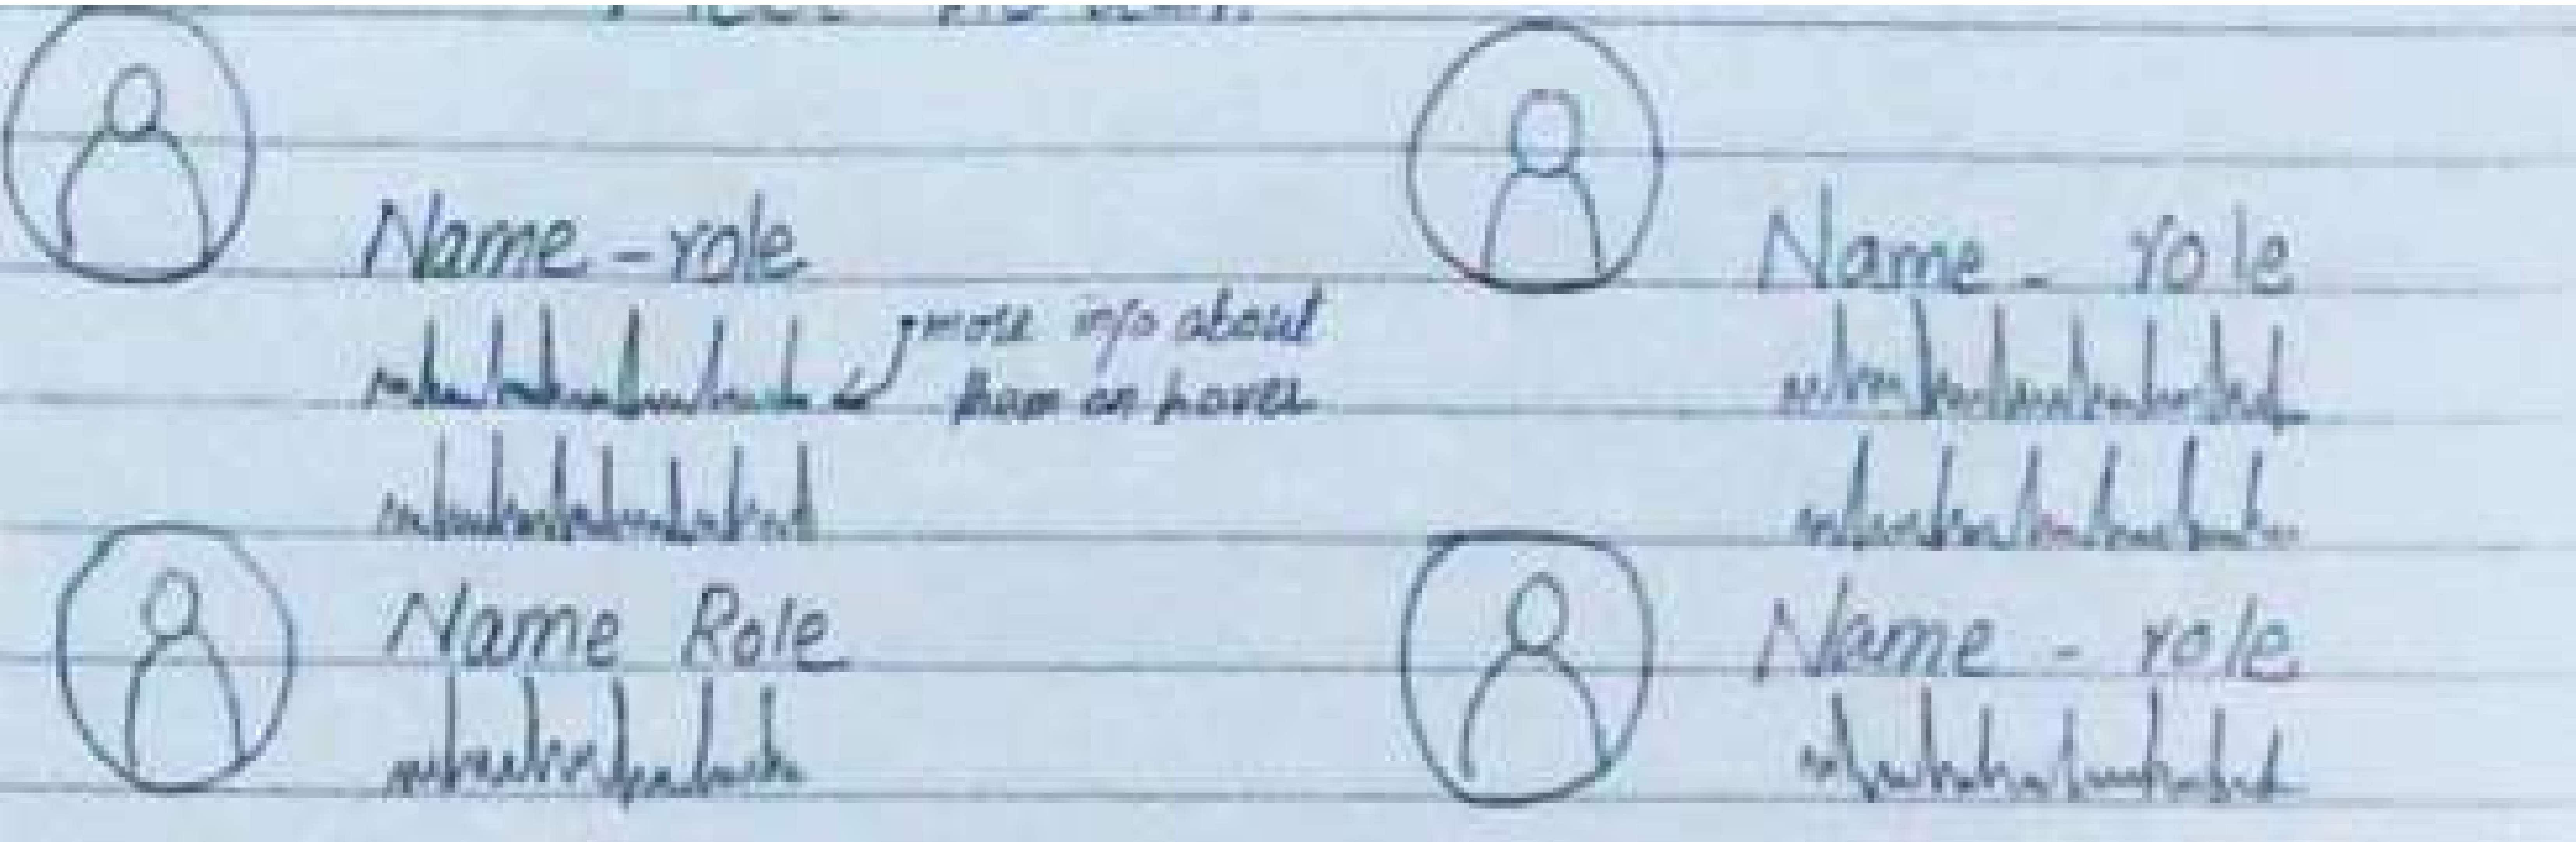 Meet the team.
Name - role
more info about
them on hover
Name - role
Name Role
Name - role